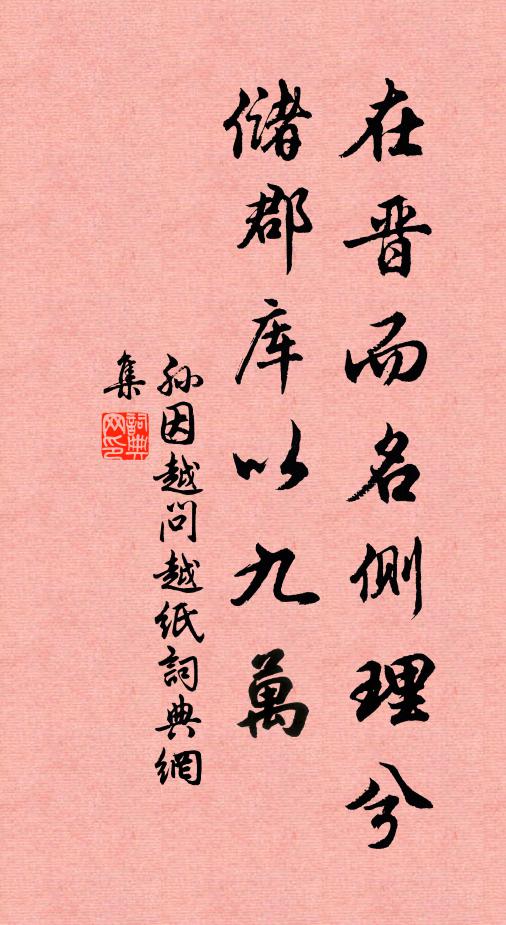 在晋而名侧理兮
储郡库以九萬
孙因越问越纸詞典網
集
詞典
网印